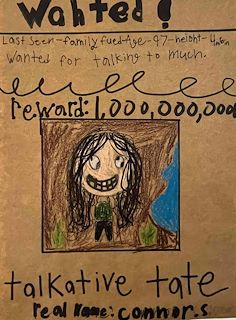 Wanted!
Last seen-family fued-Age-97-height-4n6n
Wanted for talking to much.
reward:1,000,000,000
talkative tate
real Name: connor.s